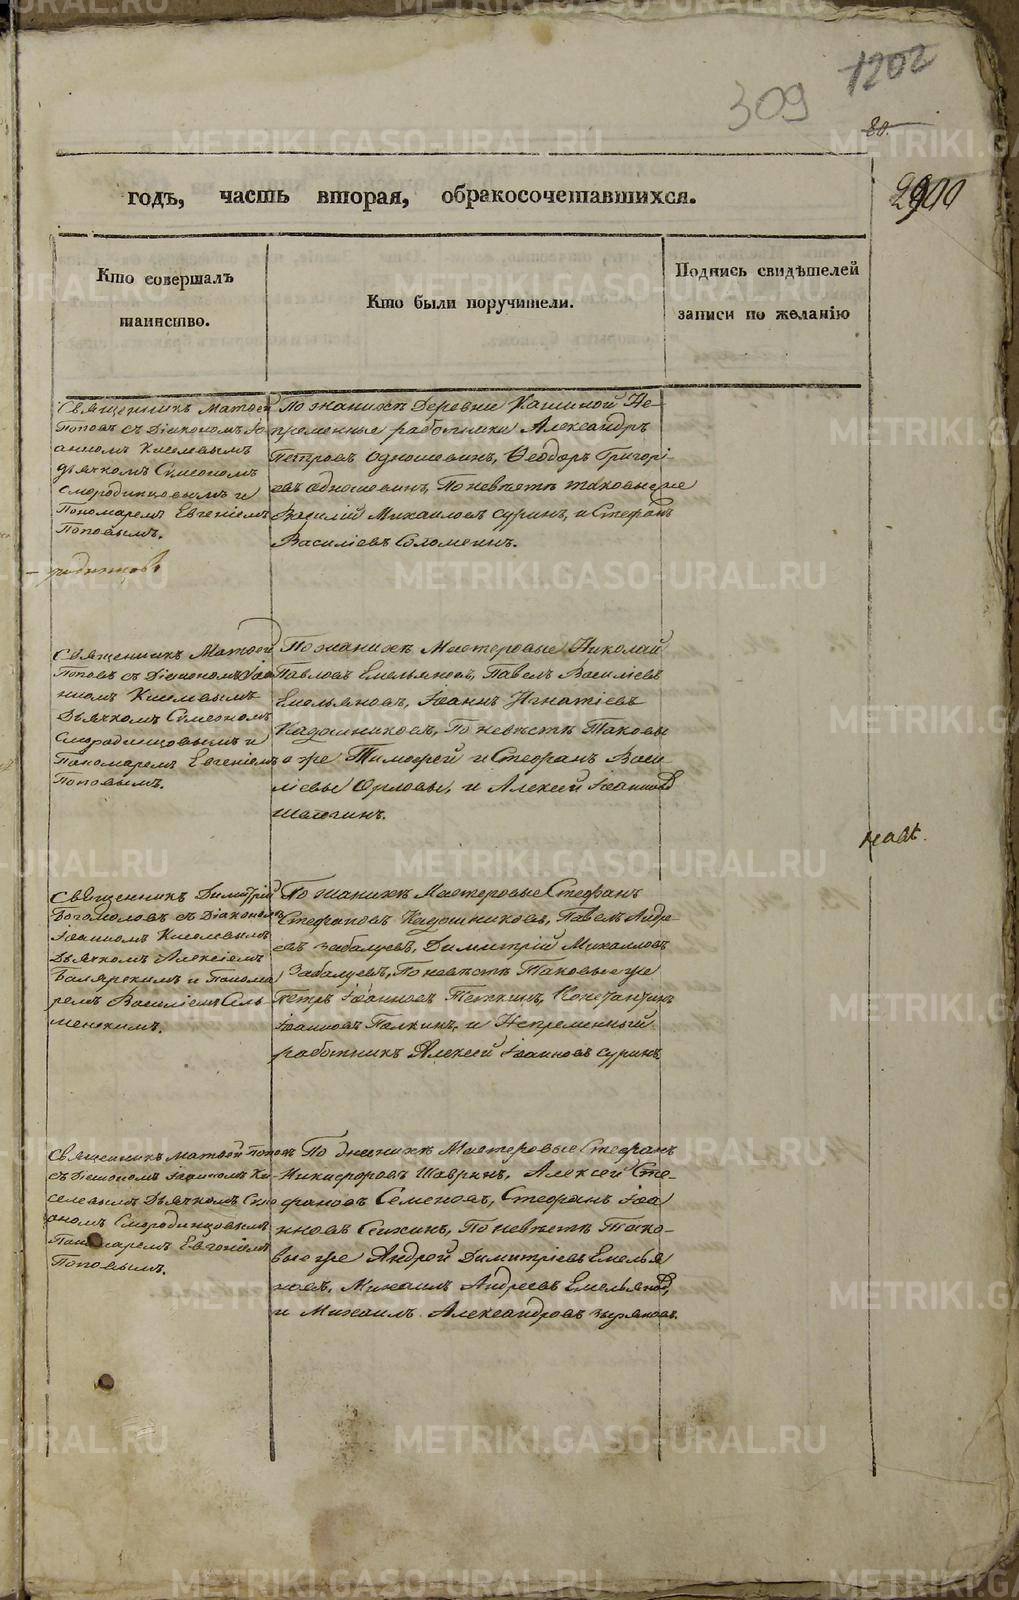 309
1202
80.
годъ, часть вторая, обракосочетавшихся.
Кто совершалъ
таинство.
Кто были поручители.
Подпись свидѣтелей
записи по желанію
Священникъ Матѳей
Поповъ съ Діакономъ Іо
анномъ Киселевымъ
дьячкомъ Симеономъ
Смородинцовымъ и
Пономаремъ Евгеніемъ
Поповымъ.
По женихѣ Деревни Кашиной Не-
пременные работники Александръ
Петровъ Одношовинъ, Ѳеодоръ Григорі-
евъ Одношовинъ, По невѣстѣ таковые же
Василій Михаиловъ Суринъ, и Стефанъ
Василіевъ Соломеинъ.
Священникъ Матѳей
Поповъ съ Діакономъ Іоа
нномъ Киселевымъ
Дьячкомъ Симеономъ
Смородинцовымъ и
Пономаремъ Евгеніемъ
Поповымъ.
По женихѣ Мастеровые Николай
Павловъ Емельяновъ, Павелъ Василіевъ
Емельяновъ, Іоаннъ Игнатіевъ
Кадошниковъ, По невѣстѣ Таковы
е же Тимофей и Стефанъ Васи
ліевы Орловы, и Алексей Іоанновъ
Шалегинъ.
Священникъ Димитрій
Богомоловъ съ Діакономъ
Іоанномъ Киселевымъ
Дьячкомъ Алексіемъ
Боярскимъ и Понома
ремъ Василіемъ Сель
менскимъ.
По женихѣ Мастеровые Стефанъ
Стефановъ Кадошниковъ, Павелъ Андре
евъ Забалуевъ, Димитрій Михаиловъ
Забалуевъ, По невѣстѣ Таковые же
Петръ Іоанновъ Телкинъ, Константинъ
Іоанновъ Палкинъ, и Непременный
работникъ Алексей Іоанновъ Суринъ
Священникъ Матѳей Поповъ
съ Діакономъ Іоанномъ Ки-
селевымъ Дьячкомъ Симе
ономъ Смородинцовымъ
Пономаремъ Евгеніемъ
Поповымъ.
По женихѣ Мастеровые Стефанъ
Никифоровъ Шавринъ, Алексей Сте-
фановъ Семеновъ, Стефанъ Іоа
нновъ Сихинъ, По невѣстѣ Тако-
вые же Андрей Димитріевъ Емелья
новъ, Михаилъ Андреевъ Емельяновъ,
и Михаилъ Александровъ Зыряновъ.